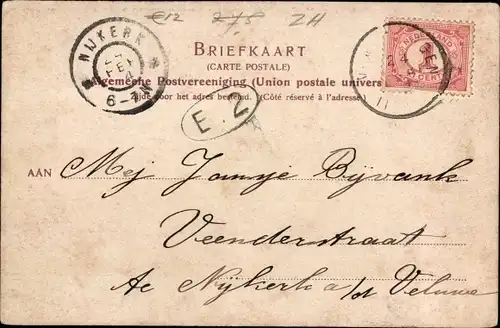 €12 2/5 ZH
NIJKERK
6-7N
BRIEFKAART
(CARTE POSTALE)
Algemeene Postvereeniging (Union postale univers
Zijde voor het adres bestemd. (Côté réservé à l'adresse.)
E.2
NEDERLAND
CENT
AAN Mej Jansje Bijvank
Veenderstraat
Te Nijkerk a/d Veluwe